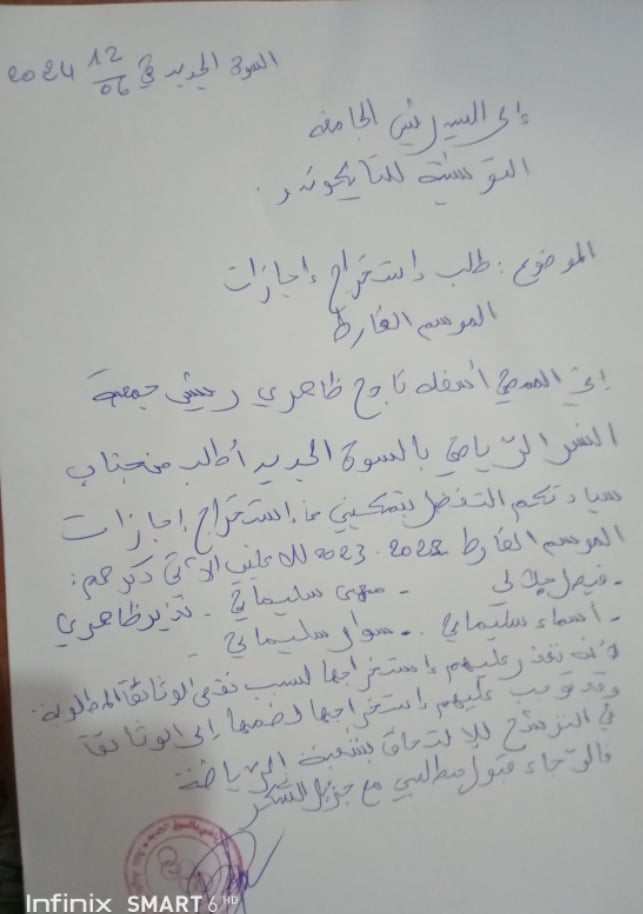 السوق الجديد في 06/12 2024
إلى السيد رئيس الجامعة
التونسية للتايكوندو.
الموضوع: طلب إستخراج إجازات
الموسم الفارط
إني الممضي أسفله ناجح ظاهري رئيس جمعية
النسر الرياضي بالسوق الجديد أطلب من جناب
سيادتكم التفضل بتمكيني من إستخراج إجازات
الموسم الفارط 2022-2023 للاعبين الآتي ذكرهم:
- فيصل - مهدي سليماني - نذير ظاهري
- أسماء سليماني - سوار سليماني -
لأنه تعذر عليهم إستخراجها لسبب نقص الوثائق المطلوبة
وقد توجب عليهم إستخراجها لضمها إلى الوثائق
في الترشح للإلتحاق بشعبة الرياضة
والرجاء قبول مطلبي مع جزيل الشكر
Infinix SMART 6 HD